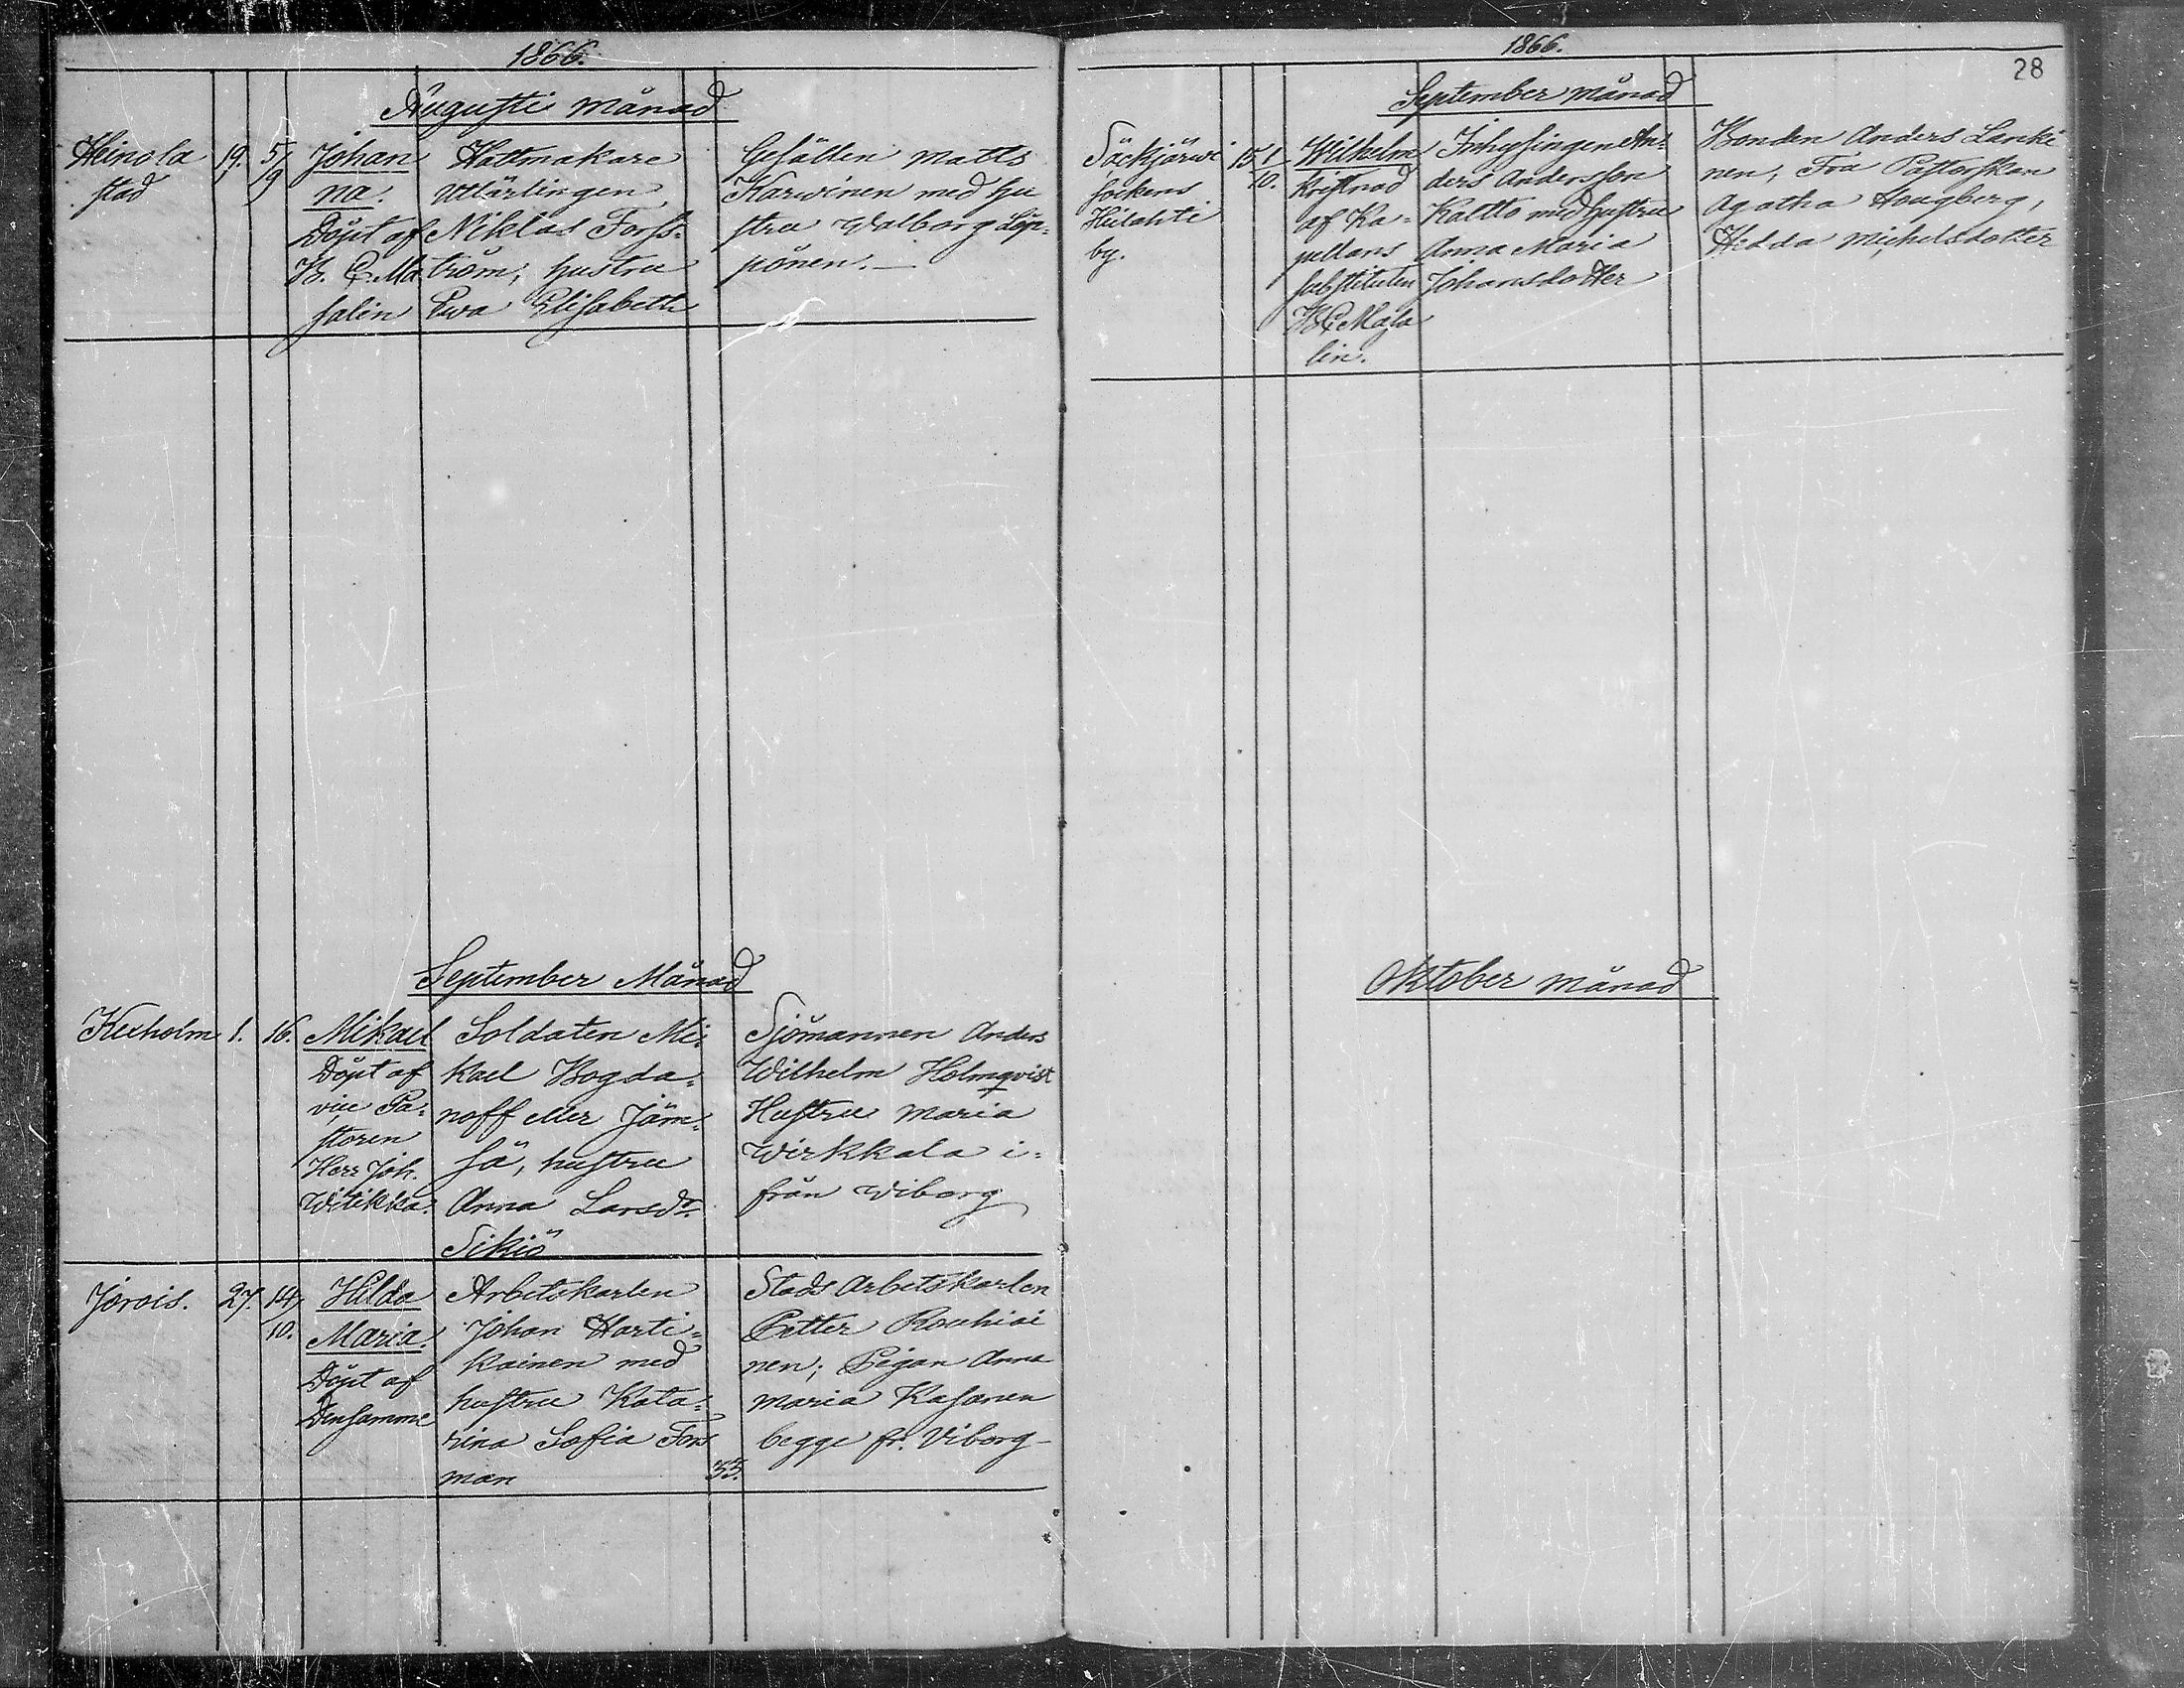 1866.
Augusti månad
Heinola
stad
19.
5/9
Johan
na.
Döpt af
K. E. Ma
salin
Hattmakare
utlärlingen
Niklas Forss-
tröm, hustru
Ewa Elisabeth
Gesällen Matts
Karwinen med hu
stru Walborg Löp-
pönen.
September Månad
Kexholm
1.
16.
Mikael
Döpt af
vice Pa-
storen
Herr Joh.
Witikka.
Soldaten Mi-
kael Bogda-
noff eller Jäm-
sä, hustru
Anna Larsdr
Sikiö
Sjömannen Anders
Wilhelm Holmqvist
Hustru Maria
Wirkkala i-
från Wiborg
Jorois.
27.
14/10.
Hilda
Maria.
Döpt af
Densamme
Arbetskarlen
Johan Harti-
kainen med
hustru Kata-
rina Sofia Fors
man
33.
Stads Arbetskarlen
Petter Rouhiai
nen; Pigan Anna
Maria Kasanen
begge fr. Viborg
1866.
28
September månad
Säckjärwi
sockens
by.
15
1/10.
Wilhelm
kristnad
af Ka-
pellans
substituten
K E Masa
lin.
Inhysingen An-
ders Andersson
Kaltto med hustru
Anna Maria
Johansdotter
Bonden Anders Lanki
nen, Fru Pastorskan
Agatha Hougberg,
Hedda Michelsdotter
Oktober månad